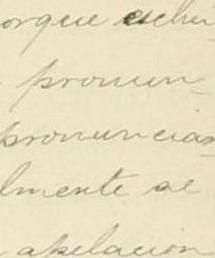 orque escher
pronun-
pronuncian
lmente se
apelacion